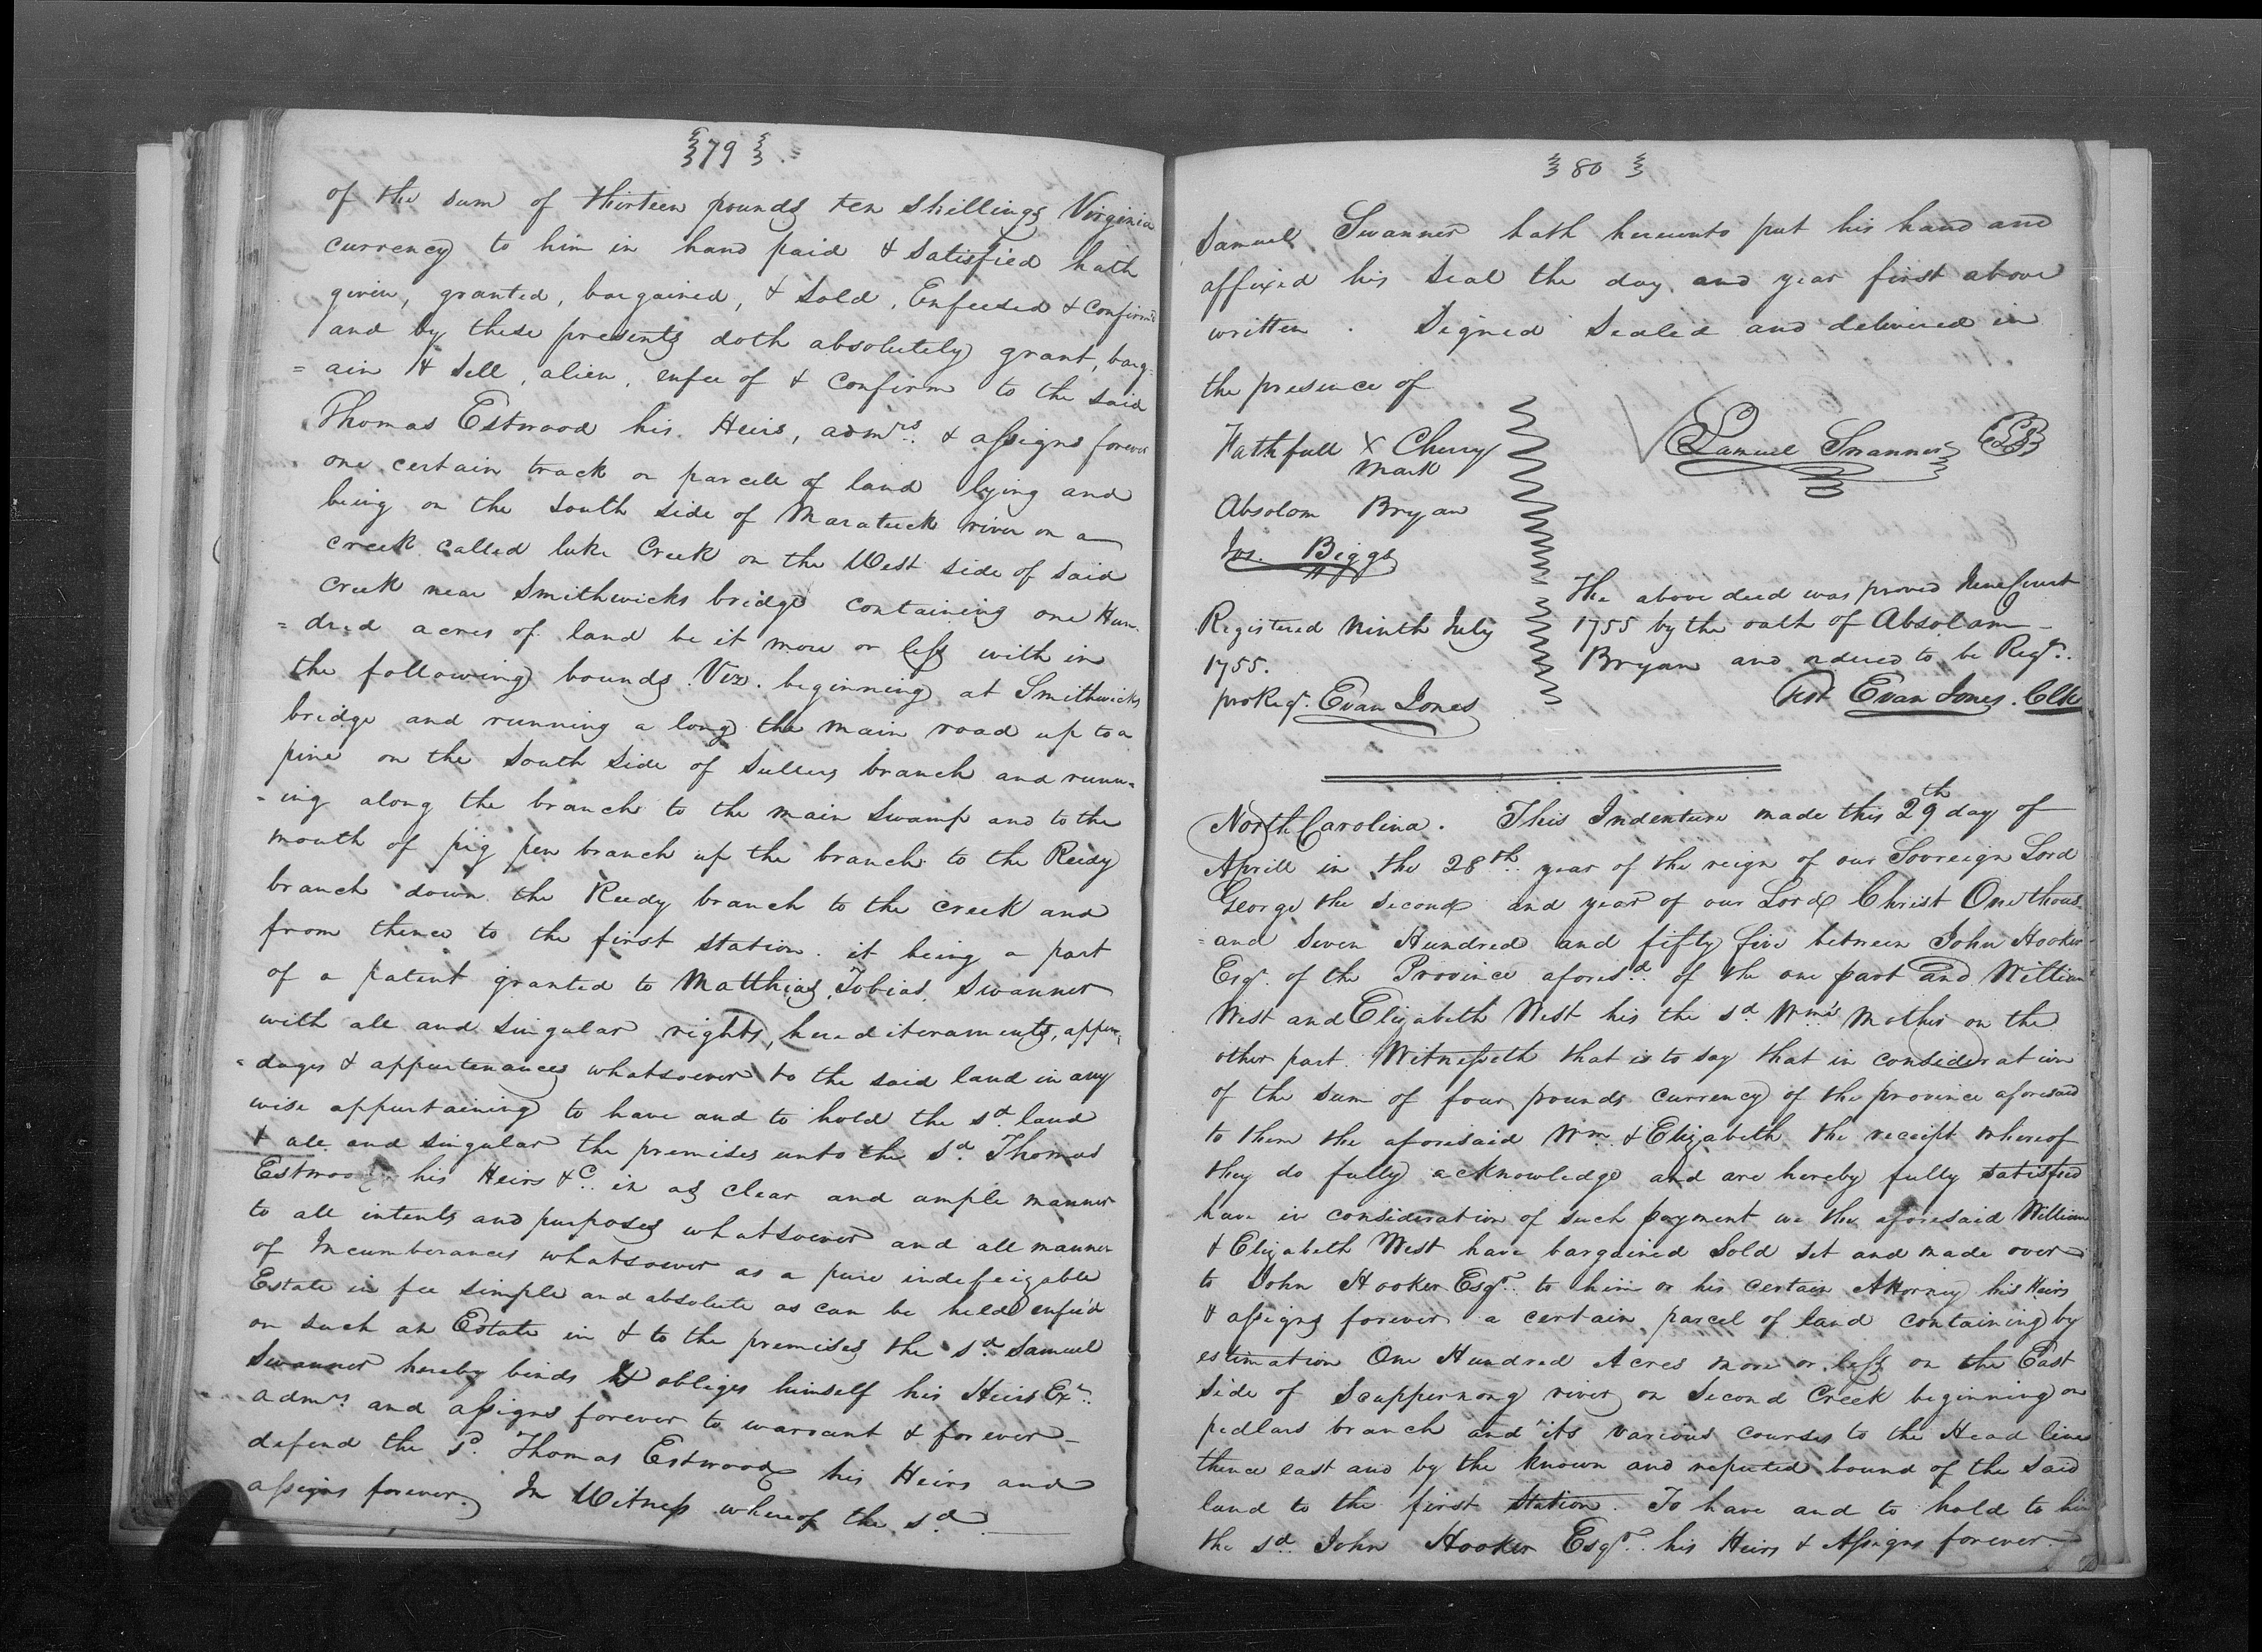 79
of the sum of thirteen pounds ten shillings Virginia
currency to him in hand paid & satisfied hath
given, granted, bargained, & sold, Enfeesed & confirmd
and by these presents doth absolutely grant, barg=
=ain & sell, alien, enfee of & confirm to the said
Thomas Estwood his Heirs, admrs. & assigns forever
one certain track or parcell of land lying and
being on the south side of Maratuck river on a
creek called luke Creek on the West side of said
Creek near Smithwicks bridge containing one Hun-
=dred acres of land be it more or less with in
the following bounds. Viz. beginning at Smithwicks
bridge and running a long the main road up to a
pine on the south side of Sullers branch and runn=
=ing along the branch to the main swamp and to the
mouth of pig pen branch up the branch to the Reedy
branch down the Reedy branch to the creek and
from thence to the first station. it being a part
of a patent granted to Matthias Tobias Swanner
with all and singular rights, hereditraments, appen=
=dages & appurtenances whatsoever to the said land in any
wise appurtaining to have and to hold the sd. land
& all and singular the premises unto the sd Thomas
Estwood his Heirs &c. in as clear and ample manner
to all intents and purposes whatsoever and all manner
of Incumberances whatsoever as a pure indefeizable
Estate in fee simple and absolute as can be held enfee'd
on such an Estate in & to the premises the sd. Samuel
Swanner hereby binds & obliges himself his Heirs Exr.
admrs. and assigns forever to warrant & forever
defend the sd. Thomas Estwood his Heirs and
assigns forever. In Witness whereof the sd
80
Samuel Swanner hath hereunto put his hand and
affixed his seal the day and year first above
written. Signed Sealed and delivered in
the presence of
Fathfull X Cherry
mark
Samuel Swanner
Absolom Bryan
Jos. Biggs
Registered Ninth July
1755.
pro Regr. Evan Jones
The above deed was proved June Court
1755 by the oath of Absolam
Bryan and ordered to be Regr.
Test Evan Jones. Clk
North Carolina. This Indenture made this 29th day of
Aprill in the 28th. year of the reign of our Sovreign Lord
George the second and year of our Lord Christ One thous=
=and seven Hundred and fifty five between John Hooker
Esqr. of the Province aforesd. of the one part and William
West and Elizabeth West his the sd Wm's Mother on the
other part. Witnesseth that is to say that in consideration
of the sum of four pounds currency of the province aforesaid
to them the aforesaid Wm. & Elizabeth the receipt whereof
they do fully acknowledge and are hereby fully satisfied
have in consideration of such payment we the aforesaid William
& Elizabeth West have bargained sold set and made over
to John Hooker Esqr. to him or his certain Attorney his Heirs
& assigns forever a certain parcel of land containing by
estimation One Hundred Acres more or less on the East
side of Scuppernong river on second Creek beginning on
pedlars branch and its various courses to the Head line
thence east and by the known and reputed bound of the said
land to the first station. To have and to hold to him
the sd. John Hooker Esqr. his Heirs & Assigns forever.